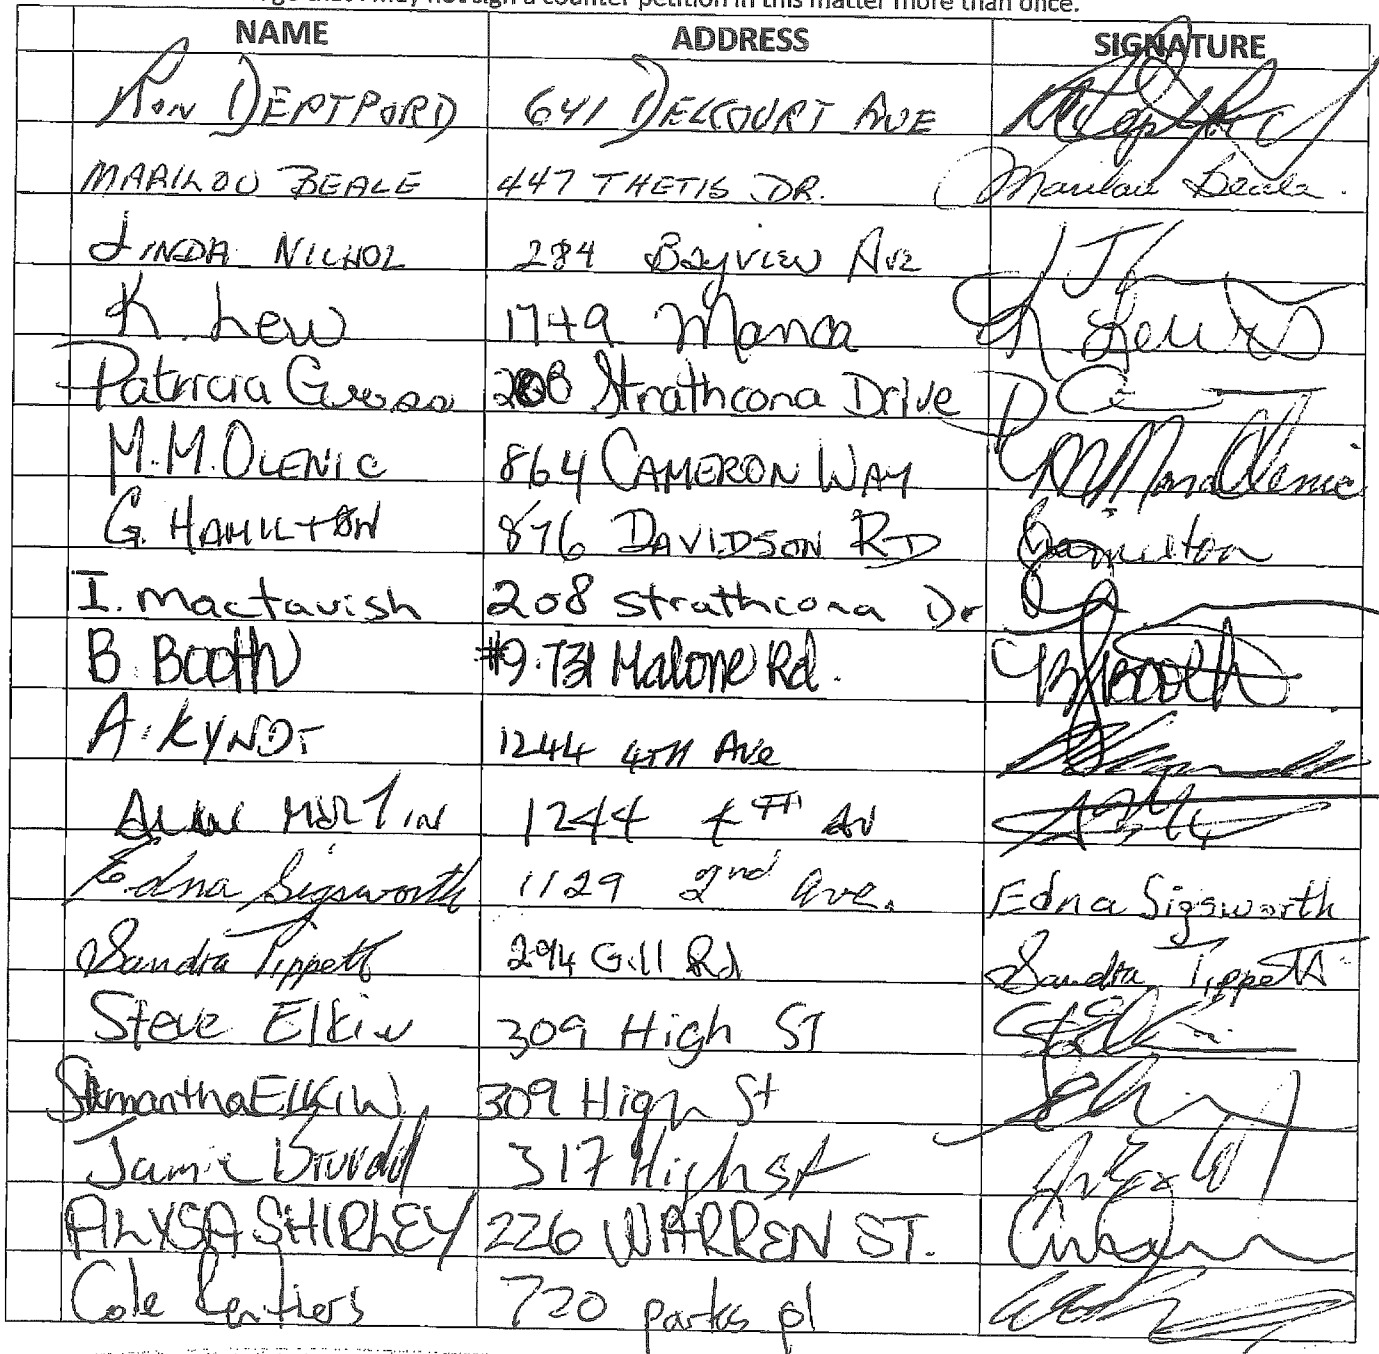 that I may not sign a counter petition in this matter more than once.
NAME ADDRESS SIGNATURE
RON DEPTFORD 641 DELCOURT AVE
MARILOU BEALE 447 THETIS DR. Marilou Beale.
LINDA NICHOL 284 Bayview Ave
K. Lew 1749 Manca K Lewis
Patricia 208 Strathcona Drive
M.M. OLENIC 864 CAMERON WAY Olenic
G. HAMILTON 876 DAVIDSON RD Hamilton
I. Mactavish 208 Strathcona Dr
B. Booth #9-731 Malone Rd. B Booth
A. KYNDT 1244 4TH Ave
ALAN MARTIN 1244 4TH AV
Edna Sigsworth 1129 2nd Ave. Edna Sigsworth
Sandra Tippett 294 Gill Rd Sandra Tippett
Steve Elkin 309 High ST
Samantha ELKIN 309 High St
Jamie 317 High st
ALYSA SHIRLEY 226 WARREN ST.
Cole 720 parks pl